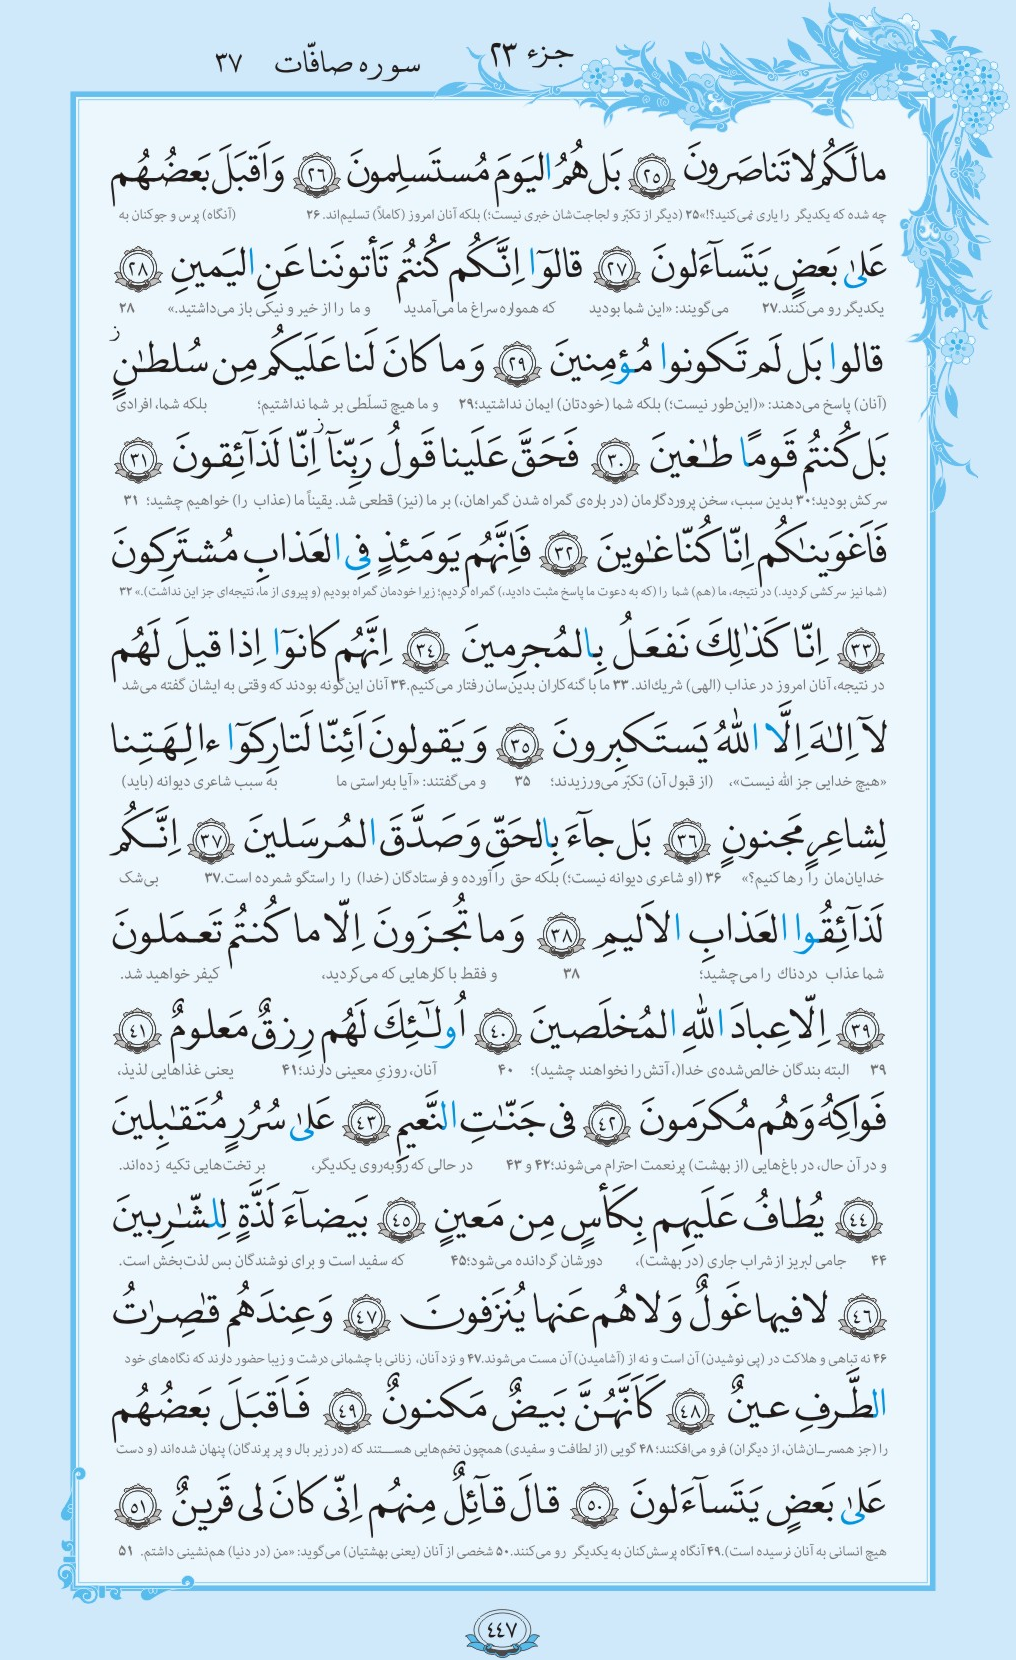 جزء ۲۳
سوره صافّات ۳۷
مالَكُم لا تَناصَرونَ ﴿٢٥﴾ بَل هُمُ اليَومَ مُستَسلِمونَ ﴿٢٦﴾ وَاَقبَلَ بَعضُهُم
چه شده که یکدیگر را یاری نمی‌کنید؟!»۲۵ (دیگر از تکبّر و لجاجت‌شان خبری نیست؛) بلکه آنان امروز (کاملاً) تسلیم‌اند. ۲۶ (آنگاه) پرس و جوکنان به
عَلىٰ بَعضٍ يَتَسآءَلونَ ﴿٢٧﴾ قالوٓا اِنَّكُم كُنتُم تَأتونَنا عَنِ اليَمينِ ﴿٢٨﴾
یکدیگر رو می‌کنند.۲۷ می‌گویند: «این شما بودید که همواره سراغ ما می‌آمدید و ما را از خیر و نیکی باز می‌داشتید.» ۲۸
قالوا بَل لَم تَكونوا مُؤمِنينَ ﴿٢٩﴾ وَما كانَ لَنا عَلَيكُم مِن سُلطـٰنٍ ز
(آنان) پاسخ می‌دهند: «(این‌طور نیست؛) بلکه شما (خودتان) ایمان نداشتید؛۲۹ و ما هیچ تسلّطی بر شما نداشتیم؛ بلکه شما، افرادی
بَل كُنتُم قَومًا طـٰغينَ ﴿٣٠﴾ فَحَقَّ عَلَينا قَولُ رَبِّنآ ز اِنّا لَذآئِقونَ ﴿٣١﴾
سرکش بودید؛۳۰ بدین سبب، سخن پروردگارمان (در باره‌ی گمراه شدن گمراهان،) بر ما (نیز) قطعی شد. یقیناً ما (عذاب را) خواهیم چشید؛ ۳۱
فَاَغوَينـٰكُم اِنّا كُنّا غـٰوينَ ﴿٣٢﴾ فَاِنَّهُم يَومَئِذٍ فِى العَذابِ مُشتَرِكونَ
(شما نیز سرکشی کردید.) در نتیجه، ما (هم) شما را (که به دعوت ما پاسخ مثبت دادید،) گمراه کردیم؛ زیرا خودمان گمراه بودیم (و پیروی از ما، نتیجه‌ای جز این نداشت).» ۳۲
﴿٣٣﴾ اِنّا كَذٰلِكَ نَفعَلُ بِالمُجرِمينَ ﴿٣٤﴾ اِنَّهُم كانوٓا اِذا قيلَ لَهُم
در نتیجه، آنان امروز در عذاب (الهی) شریک‌اند. ۳۳ ما با گنه‌کاران بدین‌سان رفتار می‌کنیم.۳۴ آنان این‌گونه بودند که وقتی به ایشان گفته می‌شد
لآ اِلـٰهَ اِلَّا اللهُ يَستَكبِرونَ ﴿٣٥﴾ وَ يَقولونَ اَئِنّا لَتارِكوٓا ءالِهَتِنا
«هیچ خدایی جز الله نیست»، (از قبول آن) تکبّر می‌ورزیدند؛ ۳۵ و می‌گفتند: «آیا به‌راستی ما به سبب شاعری دیوانه (باید)
لِشاعِرٍ مَجنونٍ ﴿٣٦﴾ بَل جآءَ بِالحَقِّ وَصَدَّقَ المُرسَلينَ ﴿٣٧﴾ اِنَّكُم
خدایان‌مان را رها کنیم؟» ۳۶ (او شاعری دیوانه نیست؛) بلکه حق را آورده و فرستادگان (خدا) را راستگو شمرده است.۳۷ بی‌شک
لَذآئِقُوا العَذابِ الاَليمِ ﴿٣٨﴾ وَما تُجزَونَ اِلّا ما كُنتُم تَعمَلونَ
شما عذاب دردناک را می‌چشید؛ ۳۸ و فقط با کارهایی که می‌کردید، کیفر خواهید شد.
﴿٣٩﴾ اِلّا عِبادَ اللهِ المُخلَصينَ ﴿٤٠﴾ اُولـٰٓئِكَ لَهُم رِزقٌ مَعلومٌ ﴿٤١﴾
۳۹ البته بندگان خالص‌شده‌ی خدا(، آتش را نخواهند چشید)؛ ۴۰ آنان، روزیِ معینی دارند؛۴۱ یعنی غذاهایی لذیذ،
فَواكِهُ وَهُم مُكرَمونَ ﴿٤٢﴾ فى جَنّـٰتِ النَّعيمِ ﴿٤٣﴾ عَلىٰ سُرُرٍ مُتَقـٰبِلينَ
و در آن حال، در باغ‌هایی (از بهشت) پرنعمت احترام می‌شوند؛۴۲ و ۴۳ در حالی که روبه‌روی یکدیگر، بر تخت‌هایی تکیه زده‌اند.
﴿٤٤﴾ يُطافُ عَلَيهِم بِكَأسٍ مِن مَعينٍ ﴿٤٥﴾ بَيضآءَ لَذَّةٍ لِلشّـٰرِبينَ
۴۴ جامی لبریز از شراب جاری (در بهشت)، دورشان گردانده می‌شود؛۴۵ که سفید است و برای نوشندگان بس لذت‌بخش است.
﴿٤٦﴾ لا فيها غَولٌ وَلا هُم عَنها يُنزَفونَ ﴿٤٧﴾ وَعِندَهُم قـٰصِرٰتُ
۴۶ نه تباهی و هلاکت در (پی نوشیدن) آن است و نه از (آشامیدن) آن مست می‌شوند.۴۷ و نزد آنان، زنانی با چشمانی درشت و زیبا حضور دارند که نگاه‌های خود
الطَّرفِ عينٌ ﴿٤٨﴾ كَاَنَّهُنَّ بَيضٌ مَكنونٌ ﴿٤٩﴾ فَاَقبَلَ بَعضُهُم
را (جز همسـران‌شان، از دیگران) فرو می‌افکنند؛۴۸ گویی (از لطافت و سفیدی) همچون تخم‌هایی هستند که (در زیر بال و پر پرندگان) پنهان شده‌اند (و دست
عَلىٰ بَعضٍ يَتَسآءَلونَ ﴿٥٠﴾ قالَ قآئِلٌ مِنهُم اِنّى كانَ لى قَرينٌ ﴿٥١﴾
هیچ انسانی به آنان نرسیده است).۴۹ آنگاه پرسش‌کنان به یکدیگر رو می‌کنند.۵۰ شخصی از آنان (یعنی بهشتیان) می‌گوید: «من (در دنیا) هم‌نشینی داشتم. ۵۱
٤٤٧